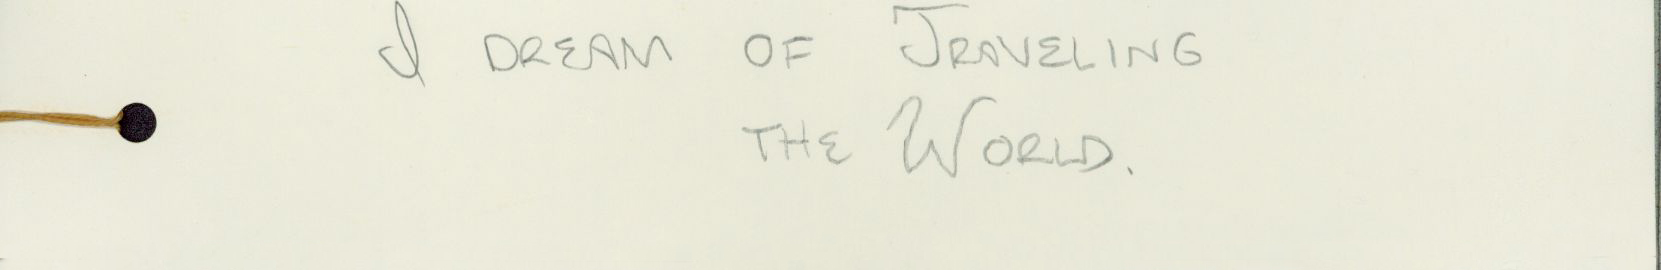 I DREAM OF TRAVELING
THE WORLD.